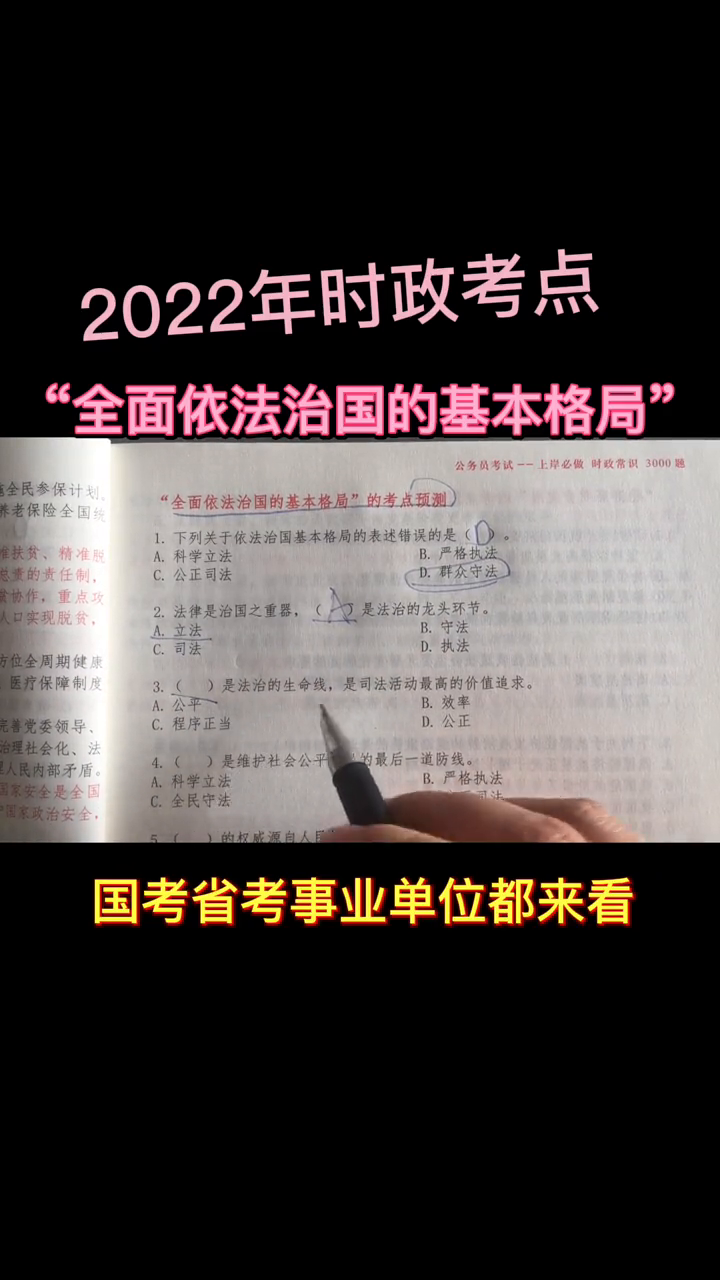 2022年时政考点
“全面依法治国的基本格局”
公务员考试--上岸必做 时政常识 3000题
施全民参保计划,
养老保险全国统
准扶贫、精准脱
总责的责任制,
贫协作,重点攻
人口实现脱贫,
方位全周期健康
医疗保障制度
完善党委领导、
治理社会化、法
理人民内部矛盾。
国家安全是全国
国家政治安全,
“全面依法治国的基本格局”的考点预测
1. 下列关于依法治国基本格局的表述错误的是( D )。
A. 科学立法 B. 严格执法
C. 公正司法 D. 群众守法
2. 法律是治国之重器,( A )是法治的龙头环节。
A. 立法 B. 守法
C. 司法 D. 执法
3.( )是法治的生命线,是司法活动最高的价值追求。
A. 公平 B. 效率
C. 程序正当 D. 公正
4.( )是维护社会公平 的最后一道防线。
A. 科学立法 B. 严格执法
C. 全民守法 司法
5.( )的权威源自人民
国考省考事业单位都来看